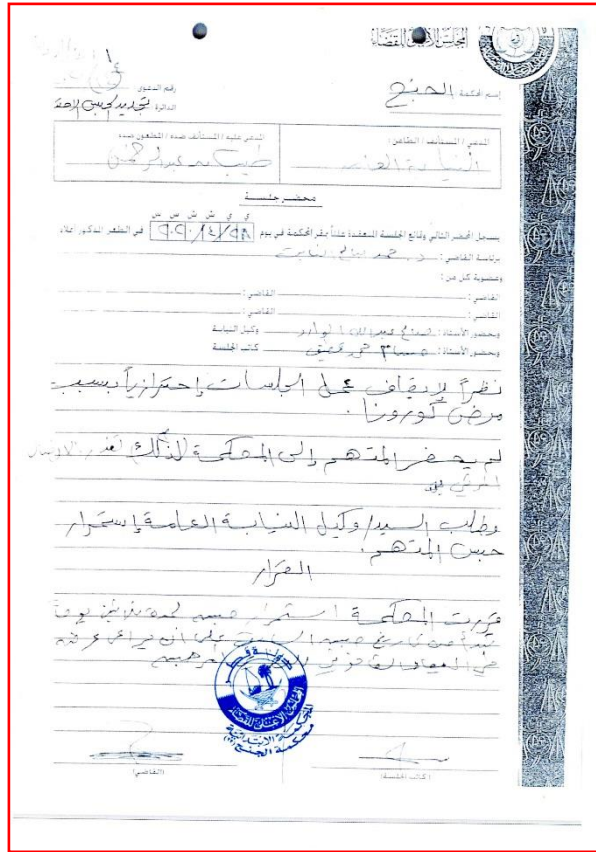 المجلس الأعلى للقضاء
إسم محكمة الجنح
رقم الدعوى
الدائرة تجديد حبس
المدعي / المستأنف / الطاعن :
النيابة العامة
المدعى عليه / المستأنف ضده / المطعون ضده
طيب بن عبدالرحمن
محضر جلسة
ي ي ش ش س س
يسجل المحضر التالي وقائع الجلسة المنعقدة علناً بمقر المحكمة في يوم ٢٨/٤/٢٠٢٠ في الطعن المذكور أعلاه
برئاسة القاضي :
وعضوية كل من :
القاضي : القاضي :
القاضي : القاضي :
وبحضور الأستاذ : وكيل النيابة
وبحضور الأستاذ : كاتب الجلسة
نظراً لإيقاف عمل الجلسات إحترازياً بسبب
مرض كورونا .
لم يحضر المتهم إلى المحكمة لذلك تعذر الاتصال
المرئي به
وطلب السيد/ وكيل النيابة العامة إستمرار
حبس المتهم .
القرار
قررت المحكمة استمرار حبسه لمدة ثلاثين يوماً
تبدأ من تاريخ حبسه السابق على أن يراعى عرضه
في الميعاد القانوني
دولة قطر
المجلس الأعلى للقضاء
المحكمة الابتدائية
محكمة الجنح
(كاتب الجلسة) (القاضي)